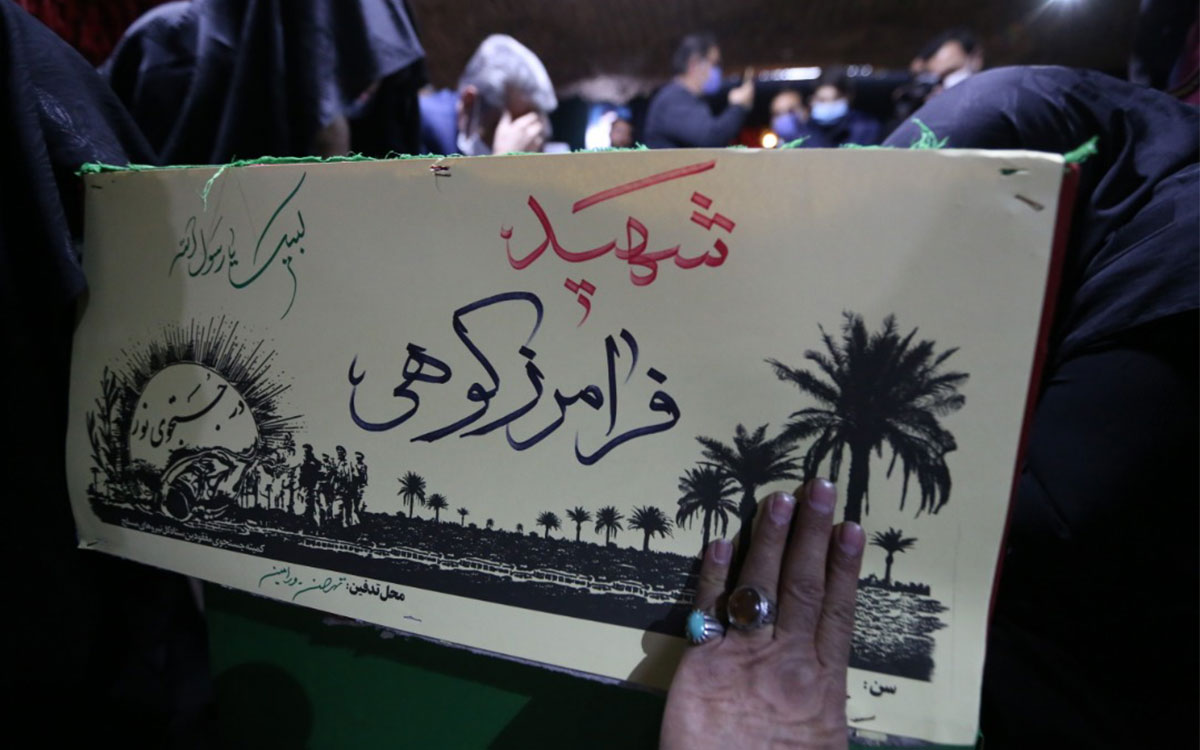 لبیک یا رسول الله
شهید
فرامرز کوهی
جستجوی نور
کمیته جستجوی مفقودین ستاد کل نیروهای مسلح
محل تدفین: تهران - ورامین
سن: